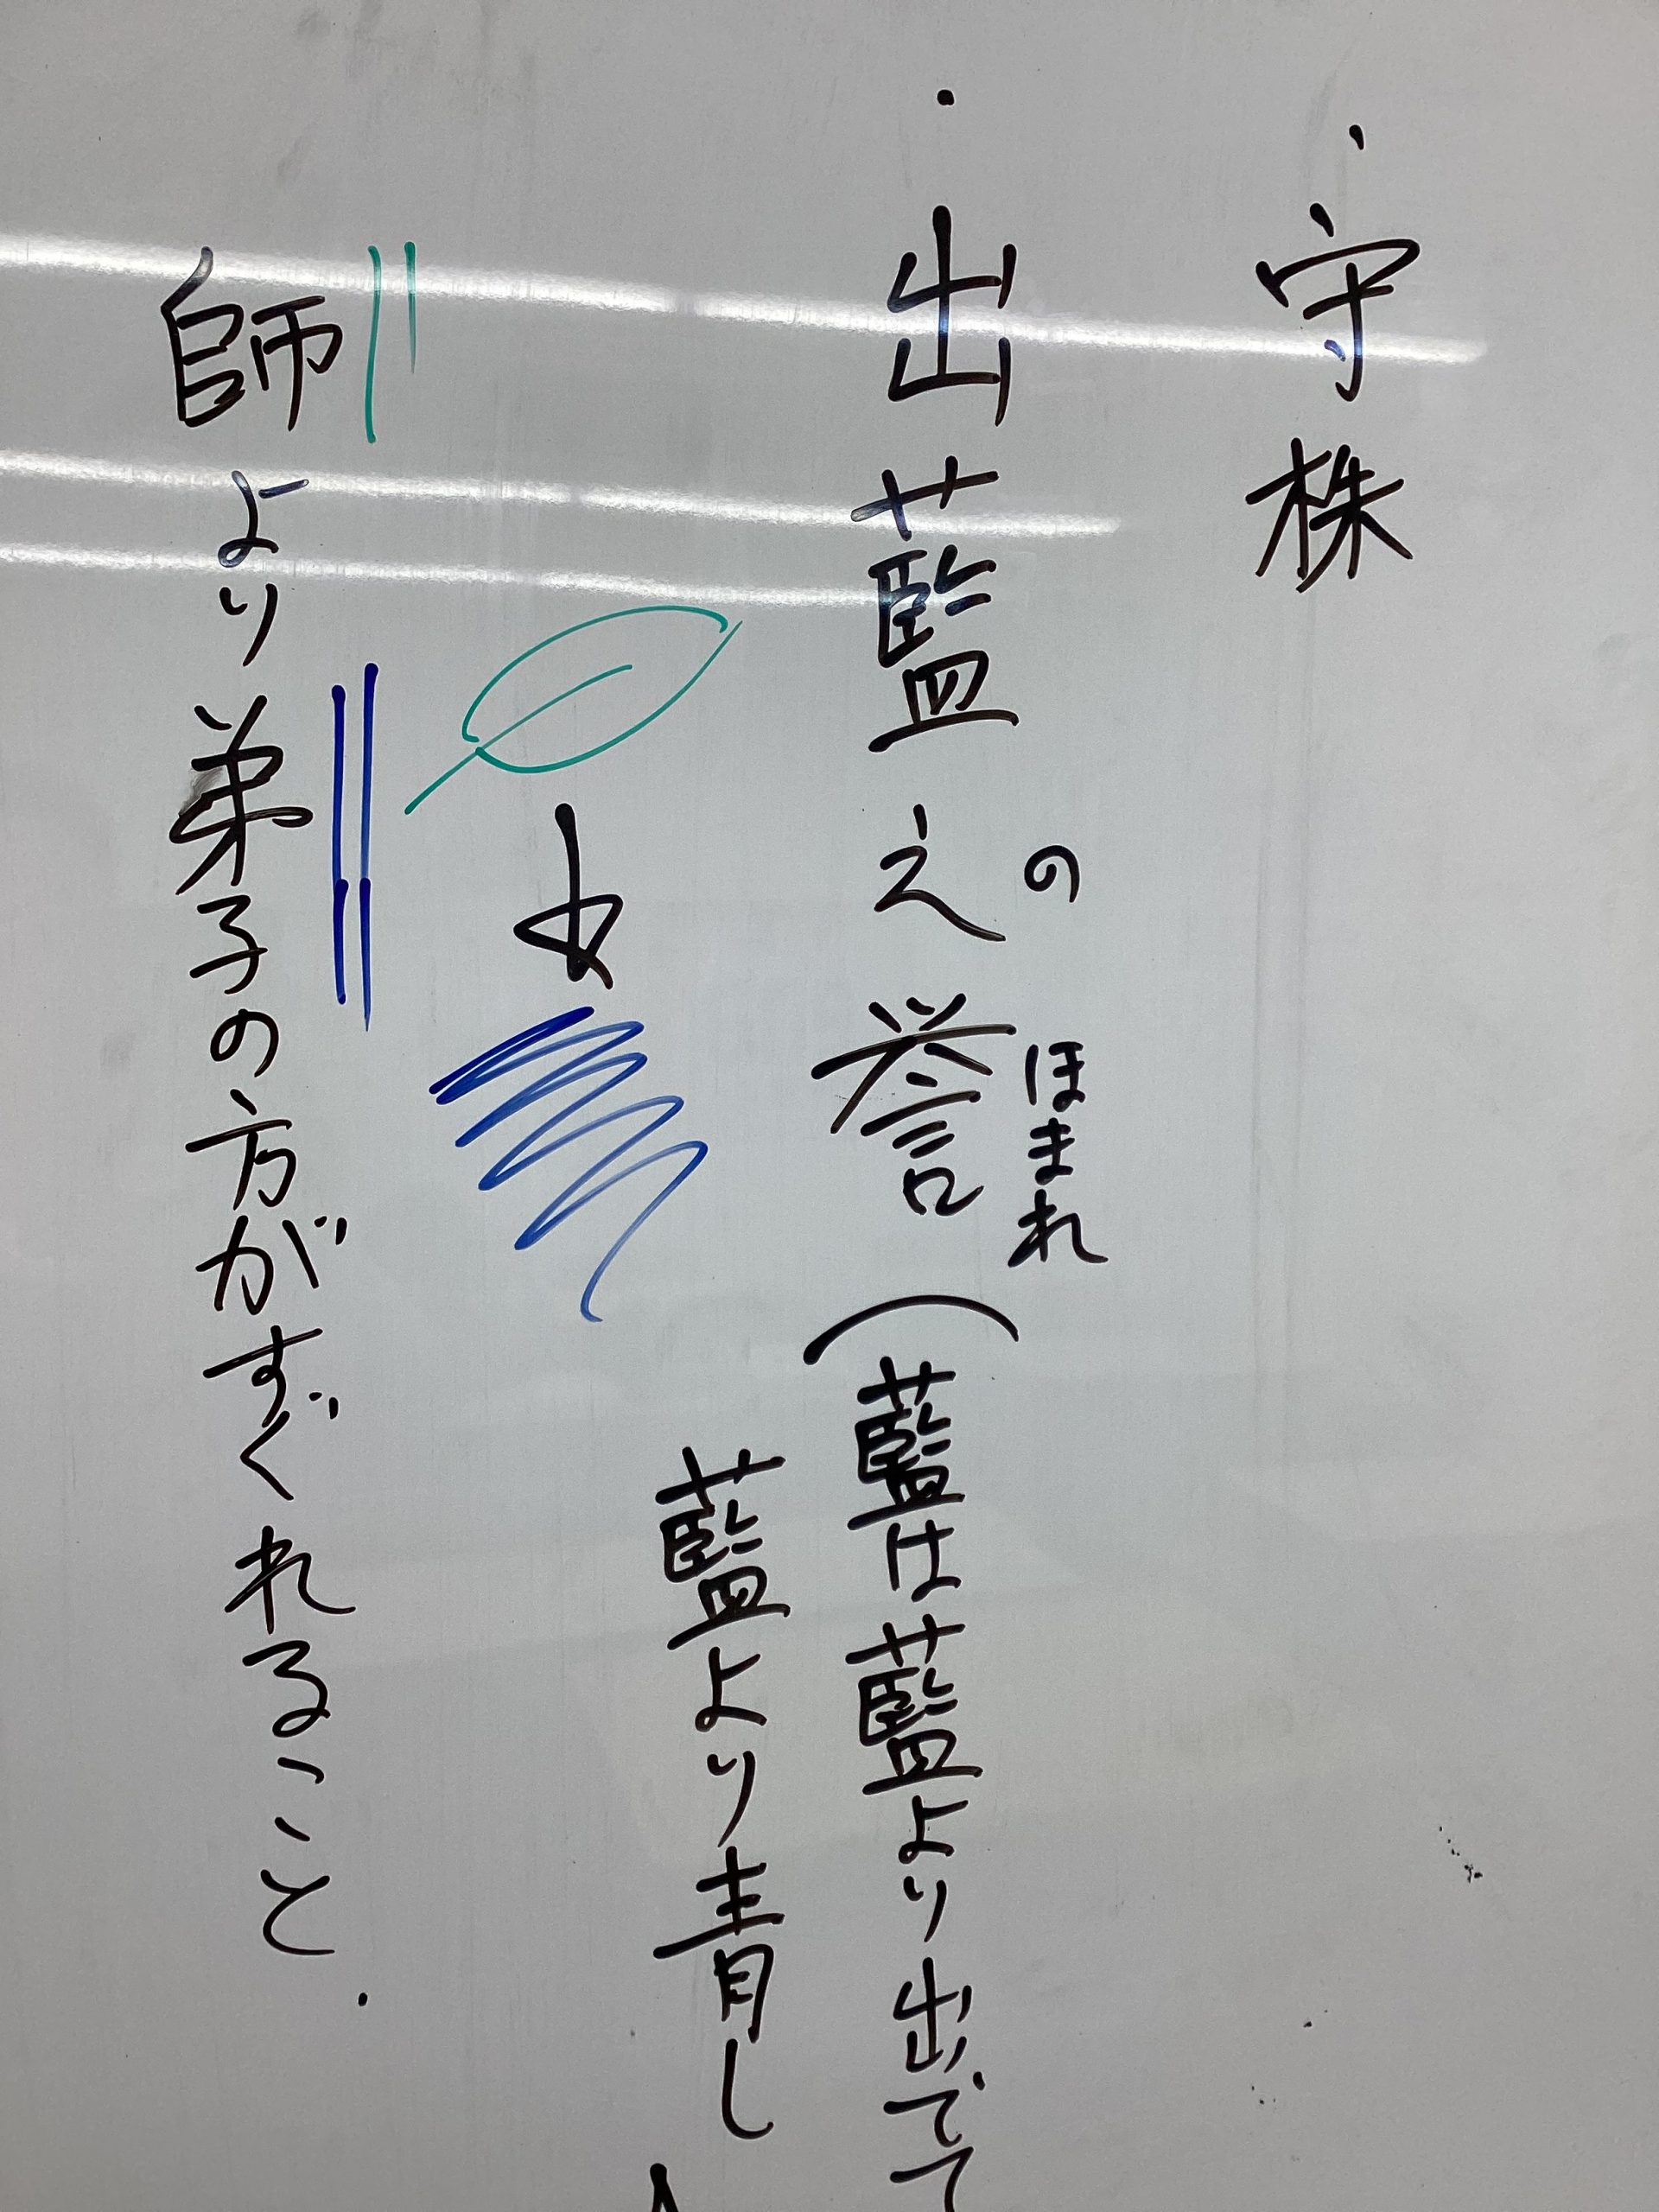 ・守株
・出藍之誉(藍は藍より出でて
の ほまれ
藍より青し
師より弟子の方がすぐれること.